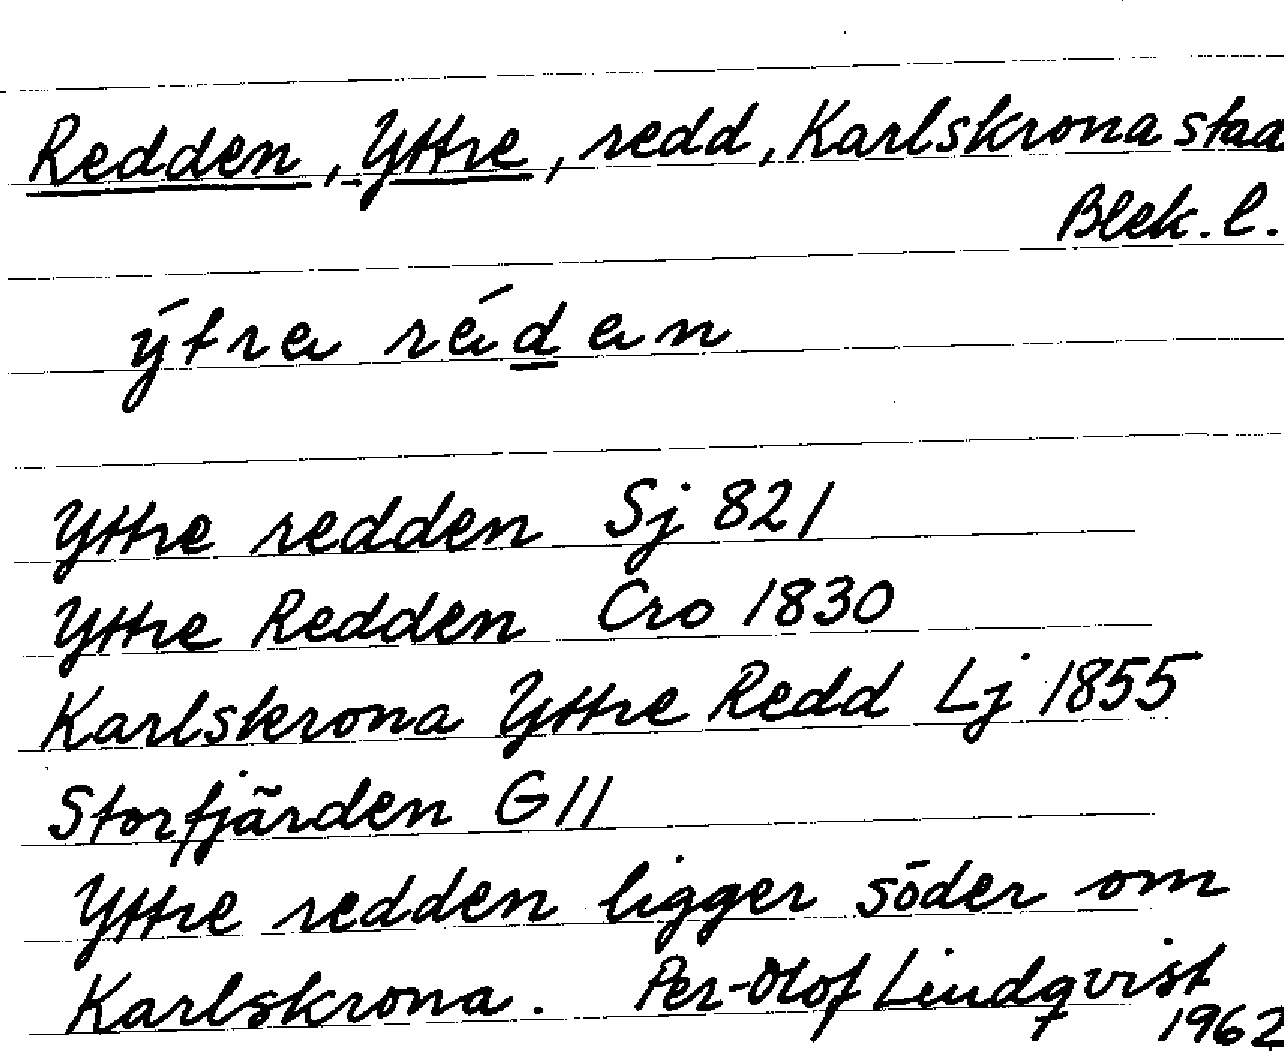 Redden, Yttre, redd, Karlskrona staa
Blek. l.
ýtra rédan
Yttre redden Sj 821
Yttre Redden Cro 1830
Karlskrona Yttre Redd Lj 1855
Storfjärden G11
Yttre redden ligger söder om
Karlskrona. Per-Olof Lindqvist
1962